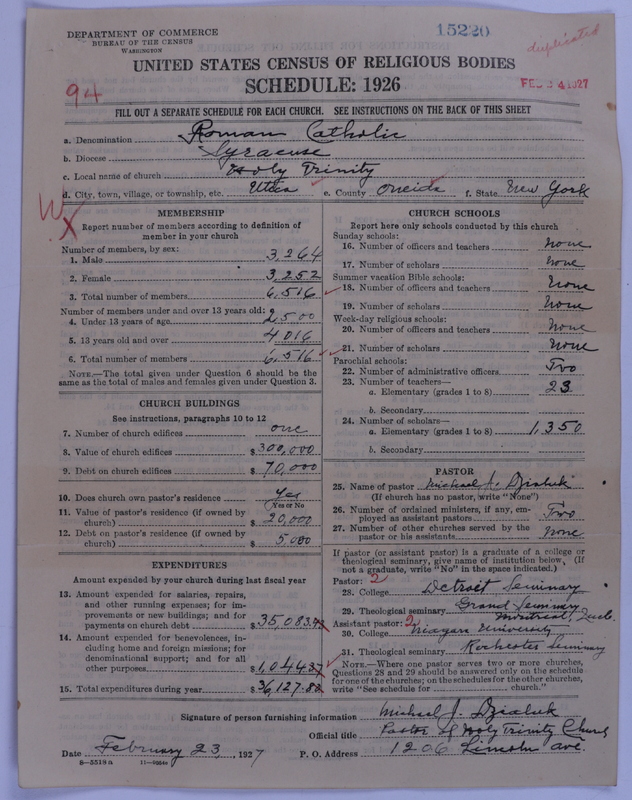 DEPARTMENT OF COMMERCE
BUREAU OF THE CENSUS
WASHINGTON
15220
duplicated
UNITED STATES CENSUS OF RELIGIOUS BODIES
SCHEDULE: 1926
94
FILL OUT A SEPARATE SCHEDULE FOR EACH CHURCH. SEE INSTRUCTIONS ON THE BACK OF THIS SHEET
a. Denomination Roman Catholic
b. Diocese Syracuse
c. Local name of church Holy Trinity
d. City, town, village, or township, etc. Utica e. County Oneida f. State New York
MEMBERSHIP
Report number of members according to definition of
member in your church
Number of members, by sex:
1. Male 3,264
2. Female 3,252
3. Total number of members 6,516
Number of members under and over 13 years old:
4. Under 13 years of age 2,500
5. 13 years old and over 4,016
6. Total number of members 6,516
NOTE.—The total given under Question 6 should be the
same as the total of males and females given under Question 3.
CHURCH BUILDINGS
See instructions, paragraphs 10 to 12
7. Number of church edifices one
8. Value of church edifices $ 300,000
9. Debt on church edifices $ 70,000
10. Does church own pastor's residence Yes
(Yes or No)
11. Value of pastor's residence (if owned by
church) $ 20,000
12. Debt on pastor's residence (if owned by
church) $ 5,000
EXPENDITURES
Amount expended by your church during last fiscal year
13. Amount expended for salaries, repairs,
and other running expenses; for im-
provements or new buildings; and for
payments on church debt $ 35,083.
14. Amount expended for benevolences, in-
cluding home and foreign missions; for
denominational support; and for all
other purposes $ 1,044.
15. Total expenditures during year $ 36,127.
CHURCH SCHOOLS
Report here only schools conducted by this church
Sunday schools:
16. Number of officers and teachers none
17. Number of scholars none
Summer vacation Bible schools:
18. Number of officers and teachers none
19. Number of scholars none
Week-day religious schools:
20. Number of officers and teachers none
21. Number of scholars none
Parochial schools:
22. Number of administrative officers Two
23. Number of teachers—
a. Elementary (grades 1 to 8) 23
b. Secondary
24. Number of scholars—
a. Elementary (grades 1 to 8) 1,350
b. Secondary
PASTOR
25. Name of pastor Michael J. Dzialuk
(If church has no pastor, write "None")
26. Number of ordained ministers, if any, em-
ployed as assistant pastors Two
27. Number of other churches served by the
pastor or his assistants none
If pastor (or assistant pastor) is a graduate of a college or
theological seminary, give name of institution below. (If
not a graduate, write "No" in the space indicated.)
Pastor: 2
28. College Detroit Seminary
29. Theological seminary Grand Seminary
Montreal, Queb.
Assistant pastor: 2
30. College Niagara University
31. Theological seminary Rochester Seminary
NOTE.—Where one pastor serves two or more churches,
Questions 28 and 29 should be answered only on the schedule
for one of the churches; on the schedules for the other churches,
write "See schedule for church."
Signature of person furnishing information Michael J. Dzialuk
Official title Pastor of Holy Trinity Church
Date February 23, 1927 P. O. Address 1206 Lincoln Ave.
8—5518a